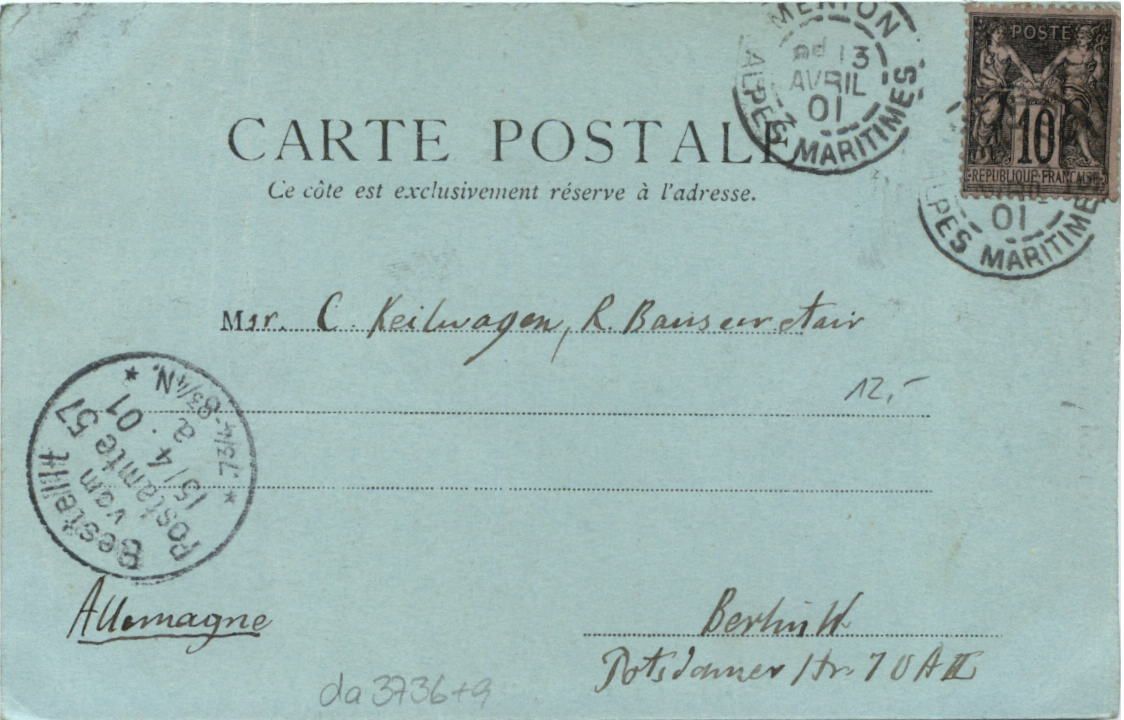 MENTON
13
AVRIL
01
ALPES MARITIMES
POSTE
10
REPUBLIQUE FRANCAISE
01
ALPES MARITIMES
CARTE POSTALE
Ce côte est exclusivement réserve à l'adresse.
Msr. C. Keilwagen, R. Bausecretair
12,-
Bestellt
vom
Postamte 57
15/4. 01
a.
* 7 3/4-8 3/4 N. *
Allemagne
Berlin W
Potsdamer Str. 70 A III
da3736+9